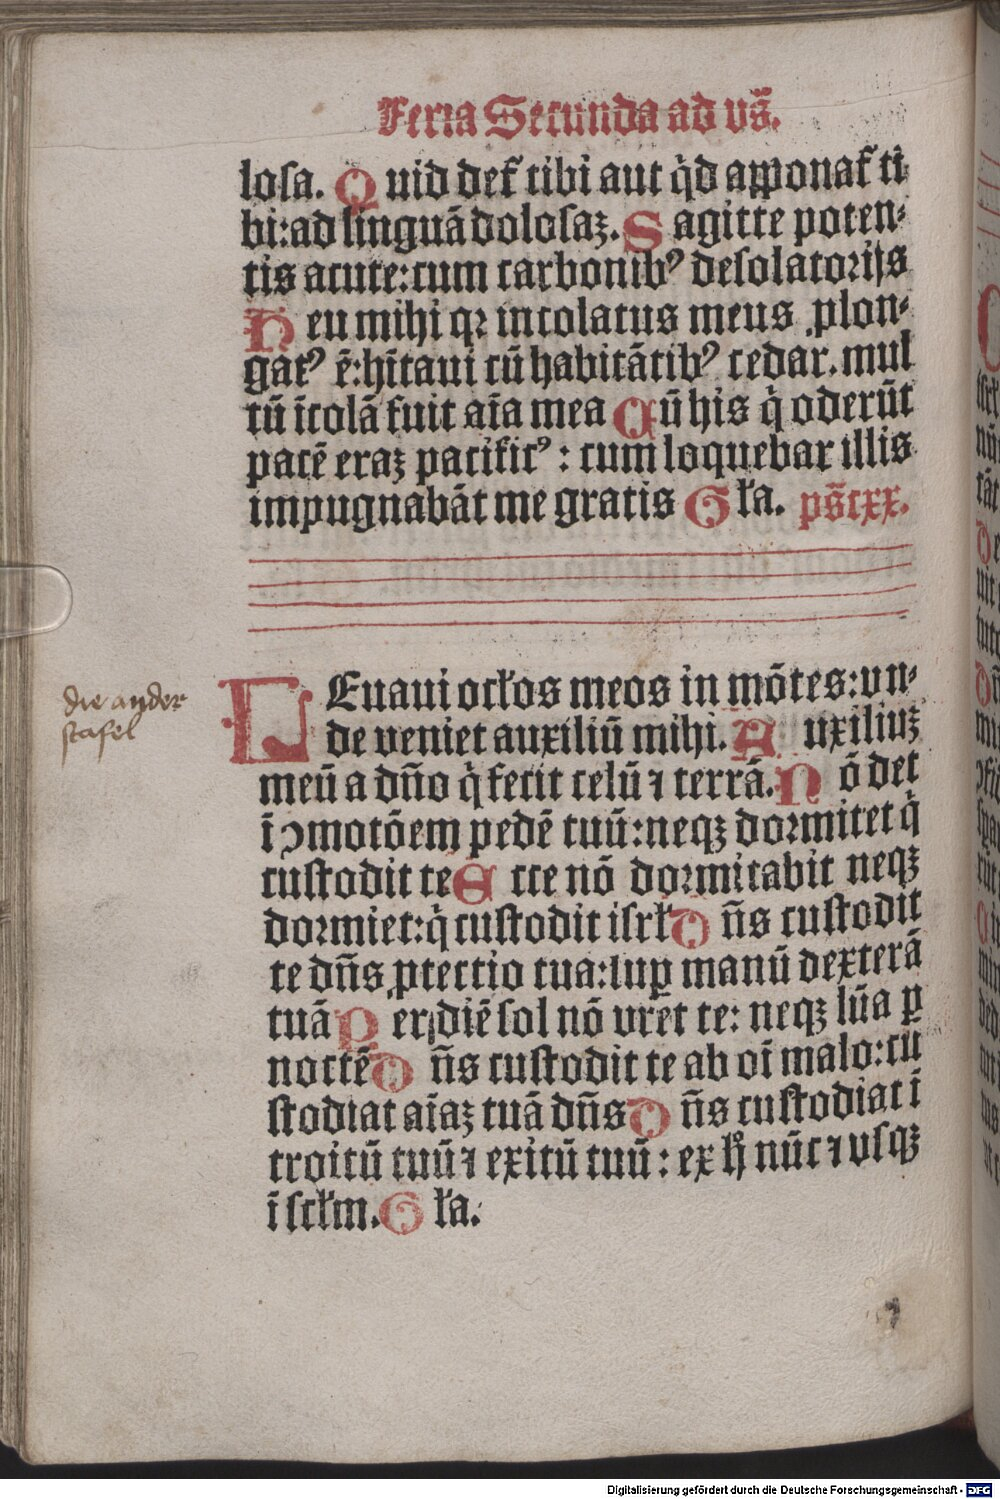 Feria Secunda ad vs̃.
losa. Quid det᷑ tibi aut q̇d apponat᷑ ti
bi: ad linguā dolosaꝫ. Sagitte poten⸗
tis acute: cum carbonibꝰ desolatorijs
Heu mihi qꝛ incolatus meus ꝓlon⸗
gatꝰ ē: hītaui cū habitātibꝰ cedar. mul
tū īcolā fuit aīa mea Cū his q̇ oderūt
pacē eraꝫ pacificꝰ: cum loquebar illis
impugnabāt me gratis Gła. ps̃ cxx.
LEuaui ocłos meos in mōtes: vn⸗
de veniet auxiliū mihi. Auxiliuꝫ
meū a dño q̇ fecit celū ⁊ terrā. Nō det
ī ↄmotōem pedē tuū: neqꝫ dormitet q̇
custodit te Ecce nō dormitabit neqꝫ
dormiet: q̇ custodit isrł Dñs custodit
te dñs ꝓtectio tua: sup manū dexterā
tuā Per diē sol nō vret te: neqꝫ lūa ꝑ
noctē Dñs custodit te ab oī malo: cu
stodiat aīaꝫ tuā dñs Dñs custodiat ī
troitū tuū ⁊ exitū tuū: ex hͦ nūc ⁊ vsqꝫ
ī scłm. Gła.
die ander
stafel
Digitalisierung gefördert durch die Deutsche Forschungsgemeinschaft - DFG